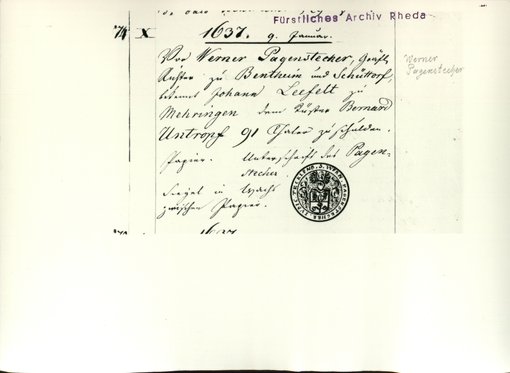 Fürstliches Archiv Rheda
X 1637. 9. Januar.
Vor Werner Pagenstecher, Gräfl.
Richter zu Bentheim und Schüttorf,
bekennt Johann Leefelt zu
Mehringen dem Küster Bernard
Untropf 91 Thaler zu schulden.
Papier. Unterschrift des Pagen-
stecher.
Siegel in Wachs
zwischen Papier.
1637
Werner
Pagenstecher